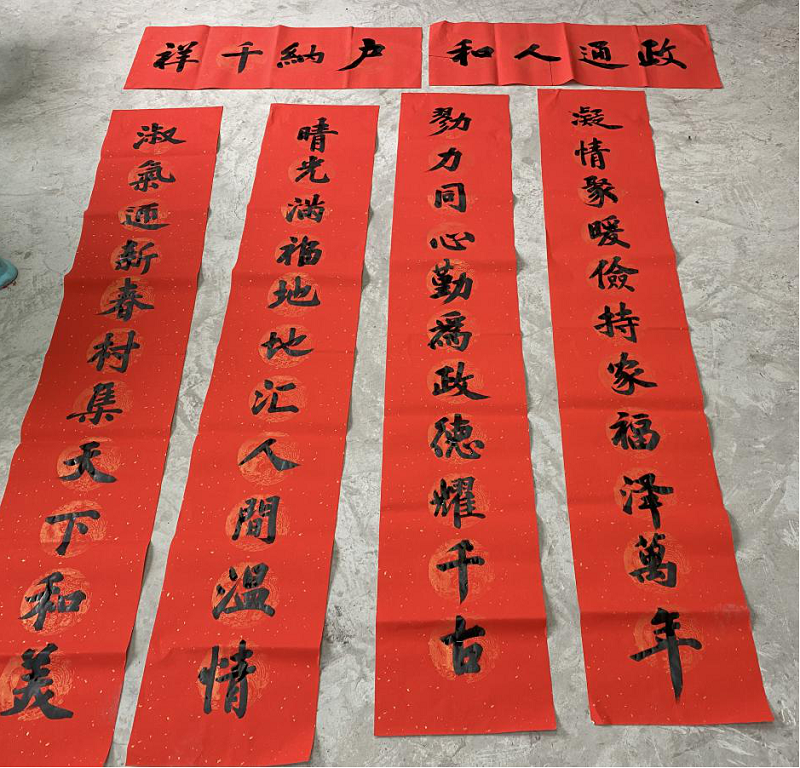 政通人和
户納千祥
凝情聚暖儉持家福泽萬年
勠力同心勤爲政德耀千古
晴光满福地地汇人間温情
淑氣迎新春村集天下和美